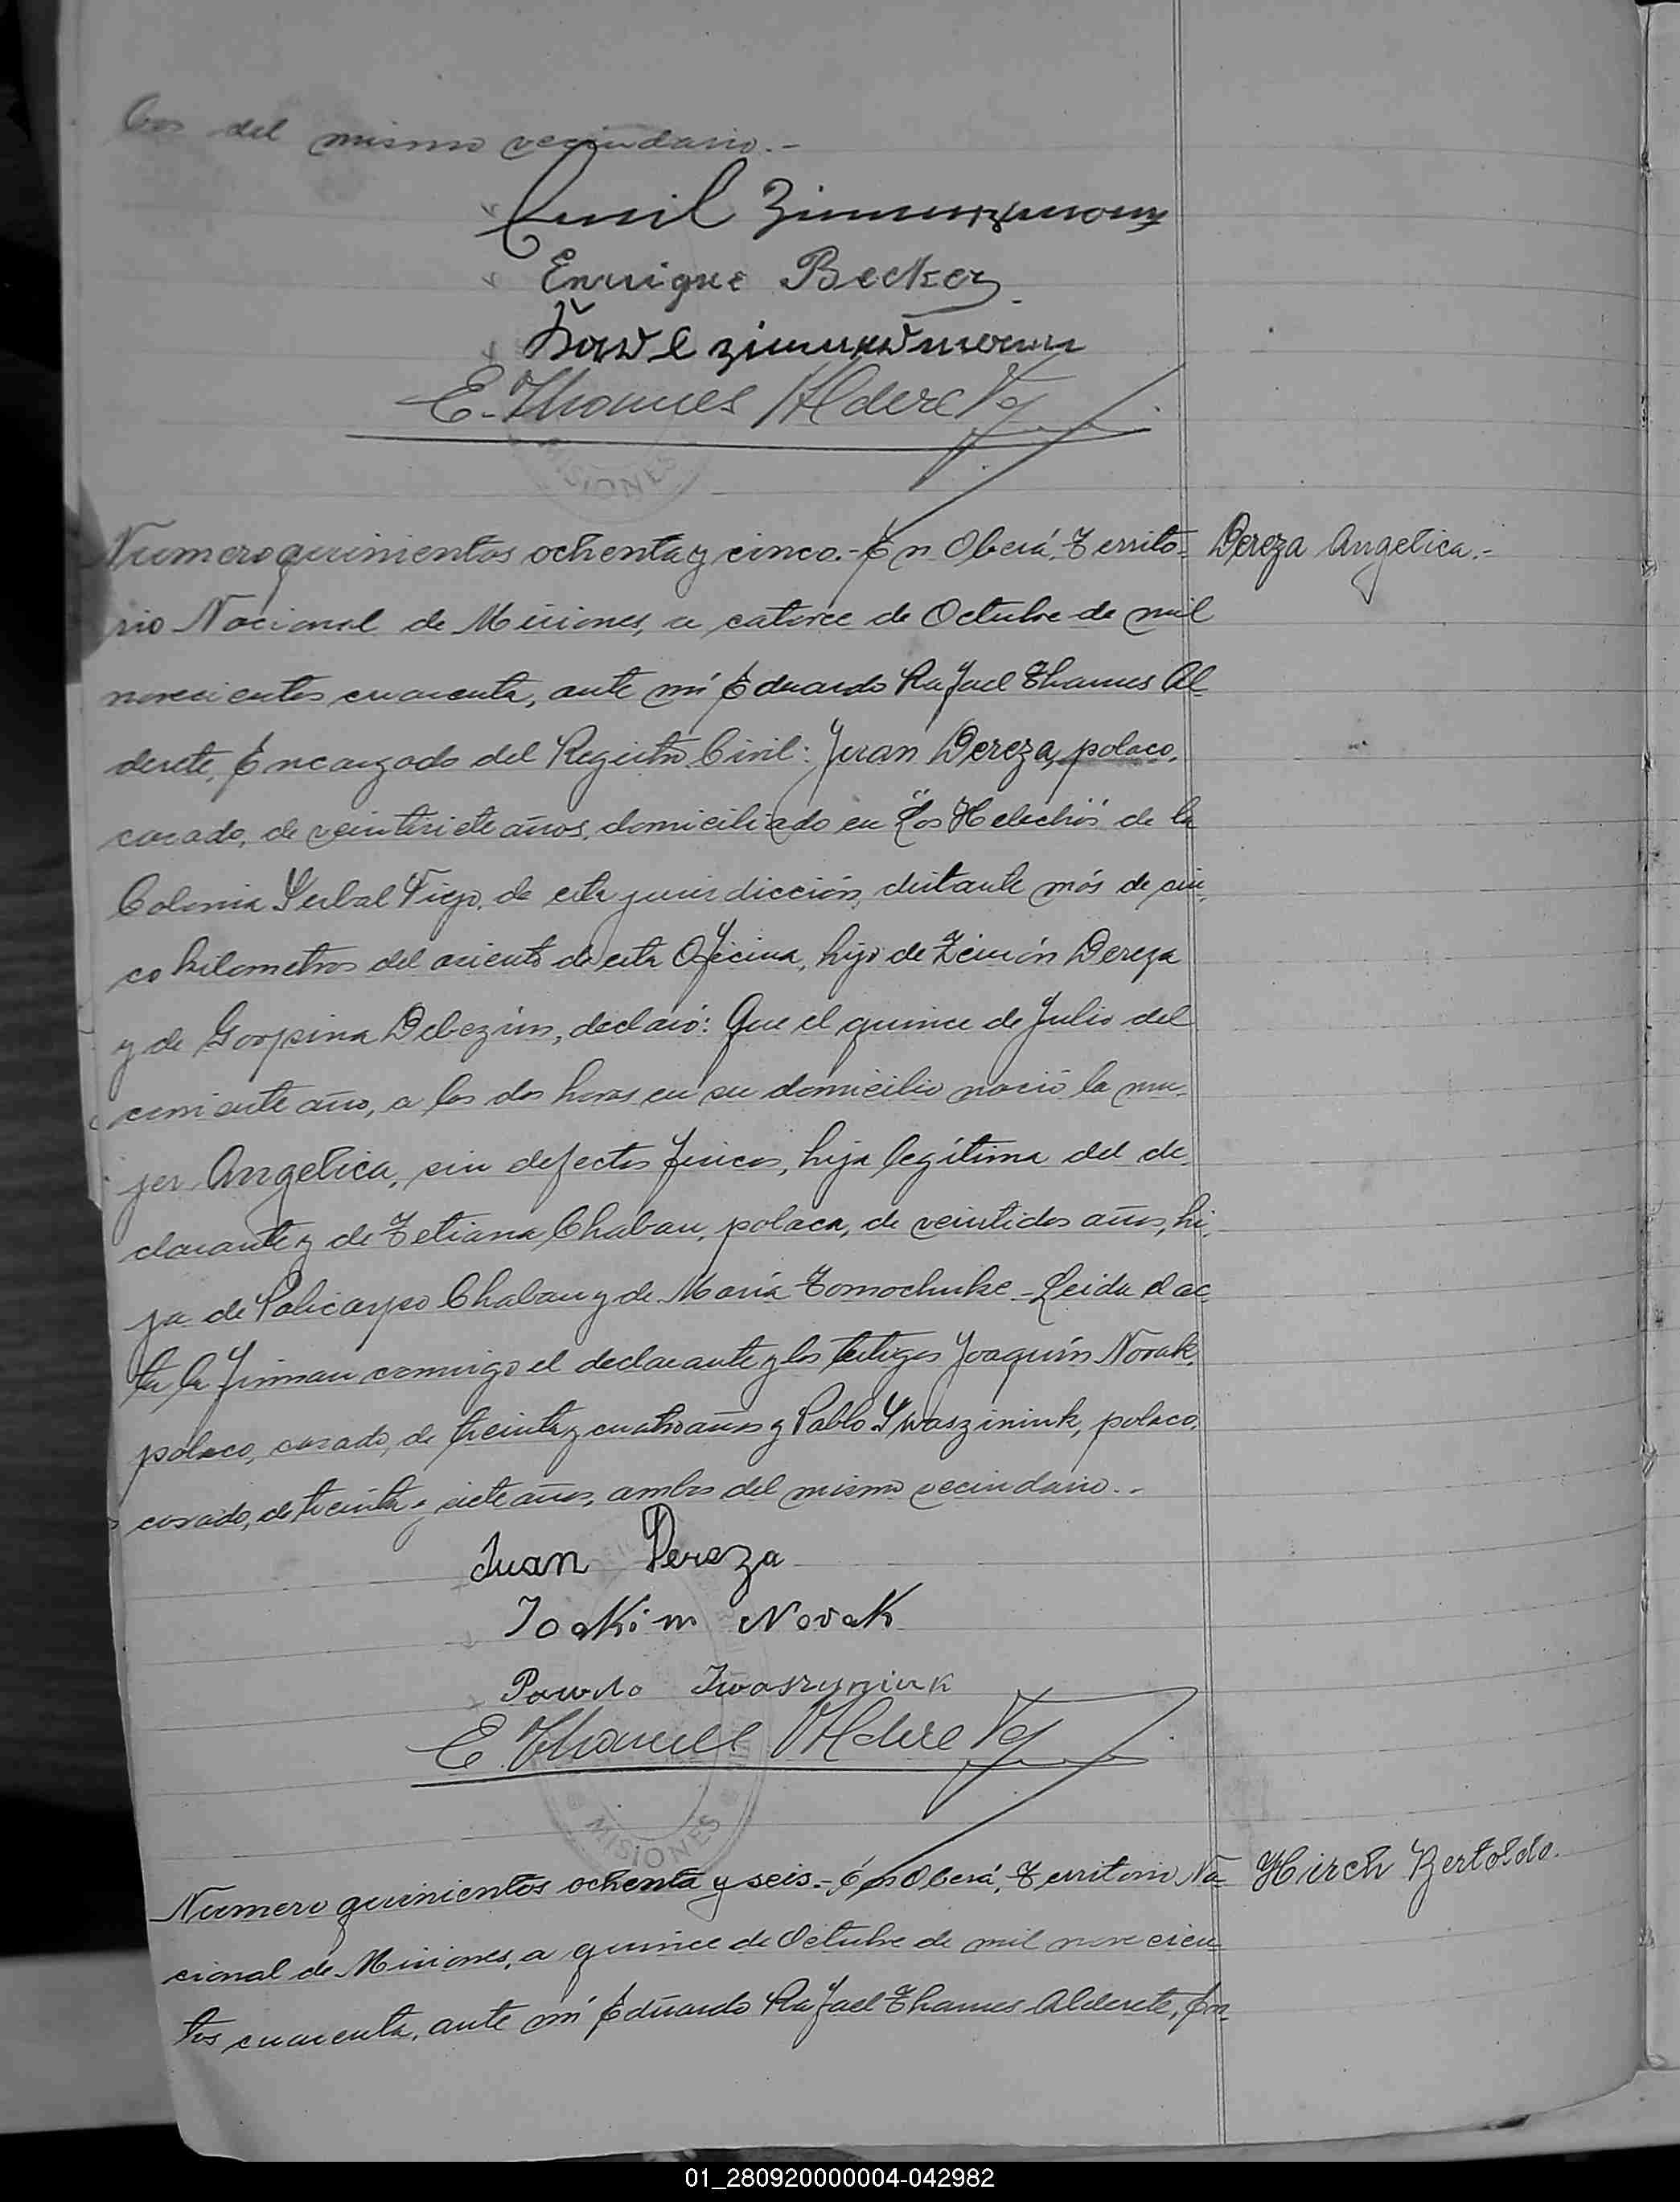 bos del mismo vecindario.-
Emil Zimmermann
Enrique Becker
Pawel Zimmermann
E. Thames Alderete
MISIONES
Numero quinientos ochenta y cinco.- En Oberá, Territo-
Dereza Angelica.-
rio Nacional de Misiones, a catorce de Octubre de mil
novecientos cuarenta, ante mí Eduardo Rafael Thames Al-
derete, Encargado del Registro Civil: Juan Dereza, polaco,
casado, de veintisiete años, domiciliado en "Los Helechos" de la
Colonia Yerbal Viejo, de esta jurisdicción, distante más de cin-
co kilometros del asiento de esta Oficina, hijo de Zimón Dereza
y de Gorpina Debezún, declaró: Que el quince de Julio del
corriente año, a las dos horas en su domicilio nació la mu-
jer Angelica, sin defectos fisicos, hija legítima del de-
clarante y de Tetiana Chaban, polaca, de veintidos años, hi-
ja de Policarpo Chaban y de María Tomochuke.- Leida el ac-
ta la firman conmigo el declarante y los testigos Joaquín Novak,
polaco, casado, de treinta y cuatro años y Pablo Ywaszinink, polaco,
casado, de treinta y siete años, ambos del mismo vecindario.-
Juan Dereza
Joakim Novak
Pawlo Iwaszyniuk
E. Thames Alderete
MISIONES
Numero quinientos ochenta y seis.- En Oberá, Territorio Na-
Hirch Bertoldo.
cional de Misiones, a quince de Octubre de mil novecien-
tos cuarenta, ante mí Eduardo Rafael Thames Alderete, En-
01_280920000004-042982